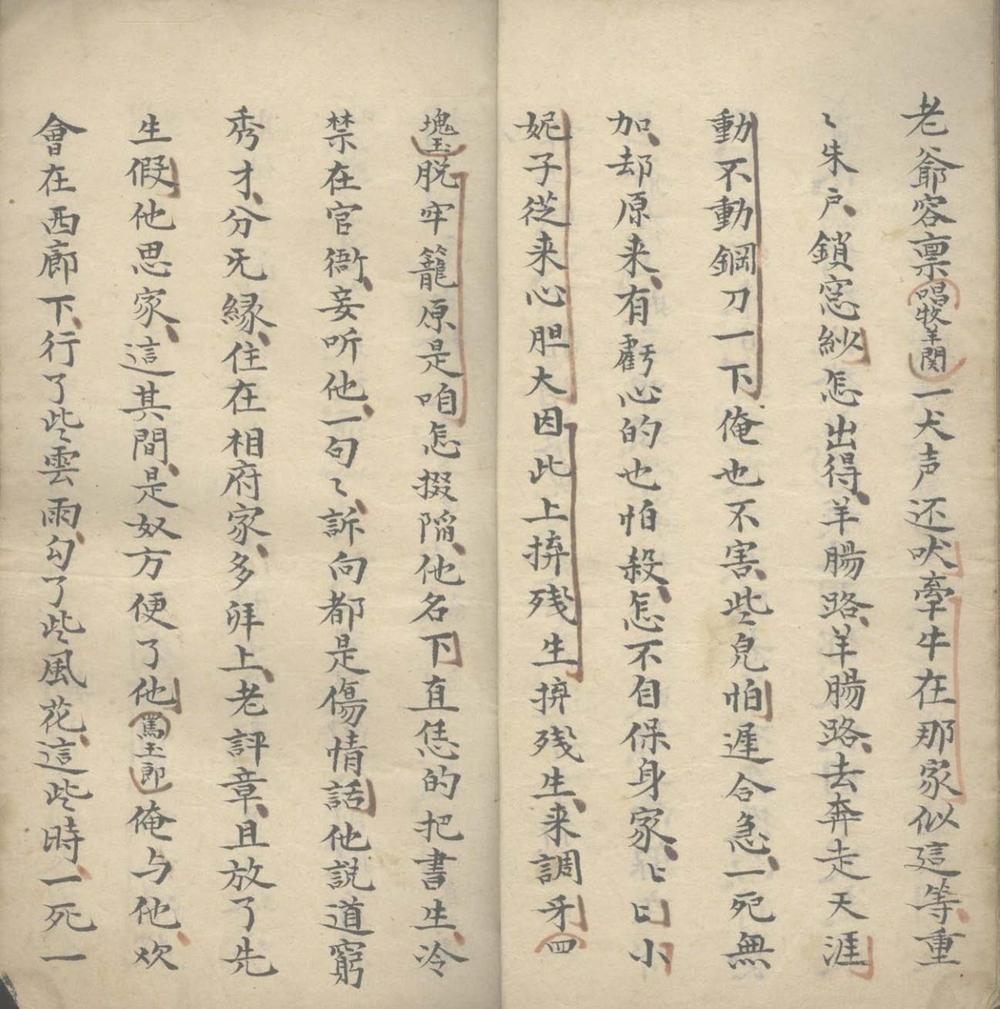 老爺容禀唱牧羊関一犬声还吠牽牛在那家似這等重
〻朱戸鎖窓紗怎出得羊腸路羊腸路去奔走天涯
動不動鋼刀一下俺也不害些兒怕遲合急一死無
加却原来有虧心的也怕殺怎不自保身家〻曰小
妮子從来心胆大因此上拚残生拚残生来調牙四
塊玉脱牢籠原是咱怎掇陷他名下直恁的把書生冷
禁在官衙妾听他一句〻訴向都是傷情話他説道窮
秀才分无縁住在相府家多拜上老評章且放了先
生假他思家這其間是奴方便了他罵玉郎俺与他炊
會在西廊下行了些雲雨勾了些風花這些時一死一